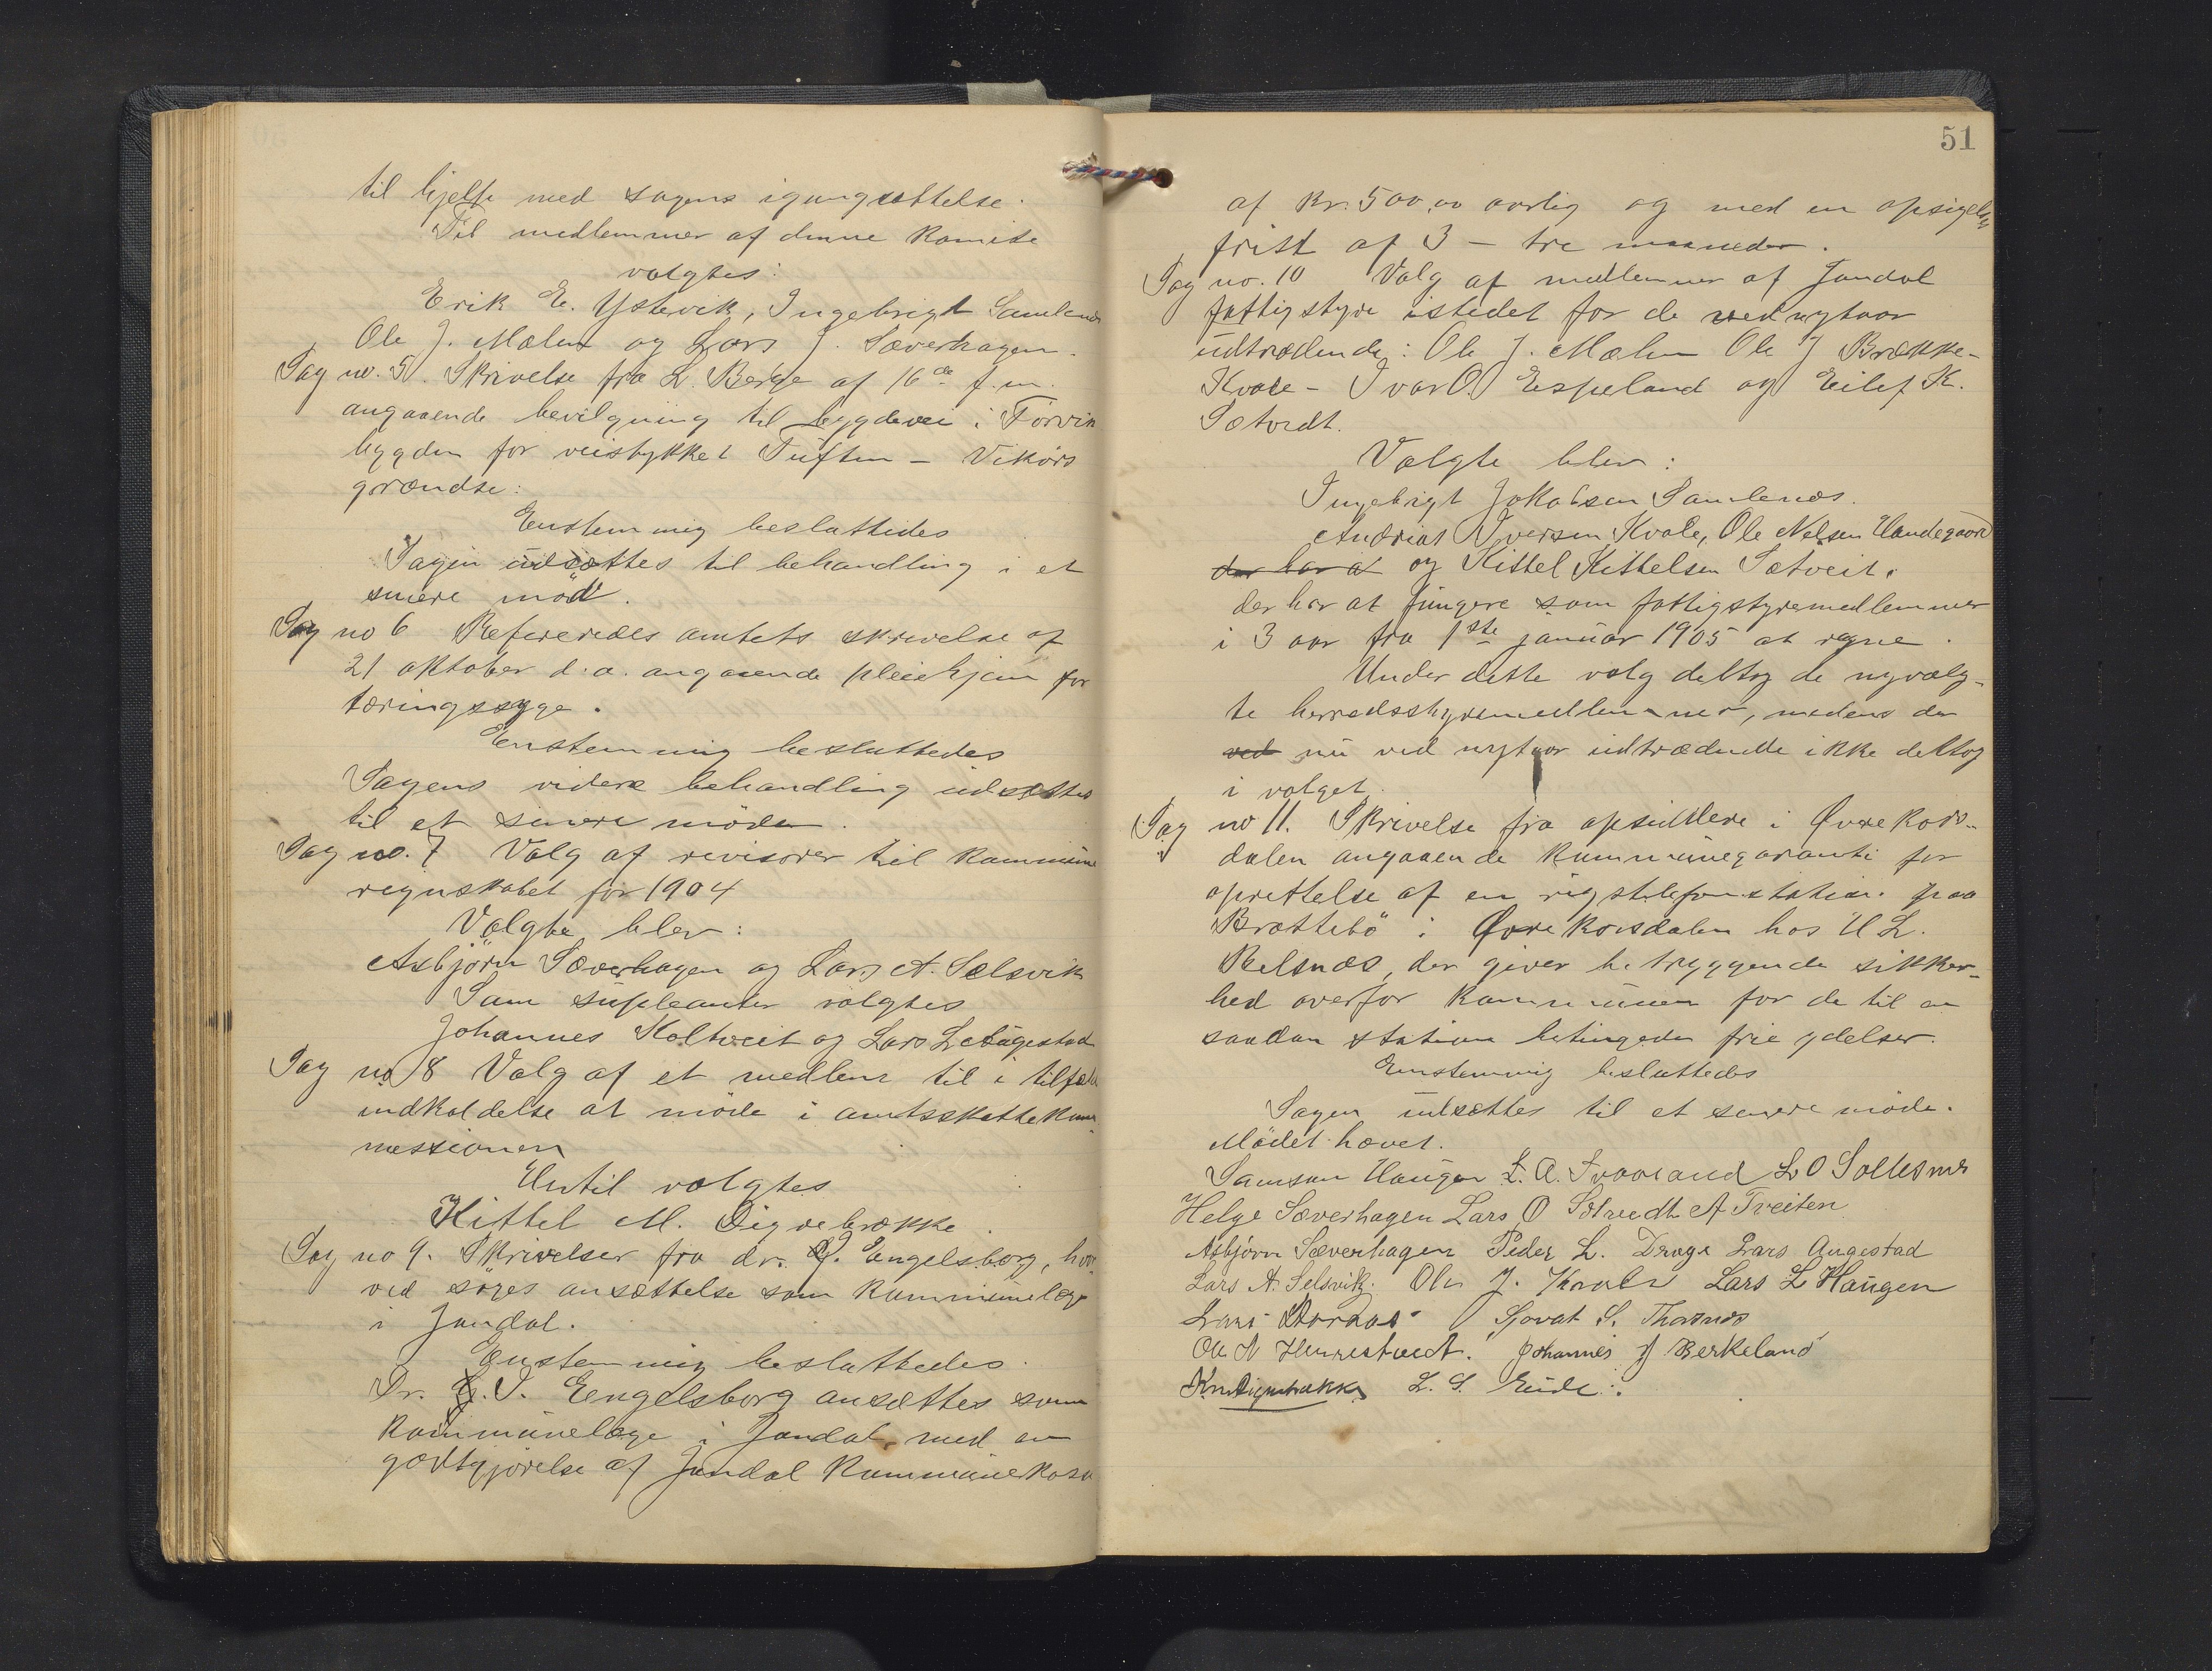 til hjelp med sagens igangsættelse.
Til medlemmer af denne komite
valgtes:
Erik E. Ystevik, Ingebrigt Samlenæs
Ole J. Mælen og Lars J. Sæverhagen.
Sag no. 5. Skrivelse fra L. Berge af 16de f.m.
angaaende bevilgning til bygdevei i Törvik
bygden for veistykket Tuften – Vikörs
grændse:
Enstemmig besluttedes
Sagen udsættes til behandling i et
senere möde.
Sag no 6 Refereredes amtets skrivelse af
21 oktober d.a. angaaende pleiehjem for
tæringssyge.
Enstemmig besluttedes
Sagens videre behandling udsættes
til et senere möde.
Sag no. 7 Valg af revisorer til kommune
regnskabet for 1904
Valgte blev:
Asbjörn Sæverhagen og Lars A. Selsvik
Som supleanter valgtes
Johannes Koltveit og Lars L Augestad
Sag no 8 Valg af et medlem til i tilfælde
indkaldelse at möde i amtsskattekom-
missionen
Hertil valgtes
Kittel M. Digrebrække.
Sag no 9. Skrivelser fra dr. J. Engelsborg, hvor
ved söges ansættelse som kommunelæge
i Jondal.
Enstemmig besluttedes.
Dr. J. Engelsborg ansættes som
kommunelæge i Jondal, med en
godtgjörelse af Jondal kommunekasse
51
af kr. 500,00 aarlig og med en opsigelses
frist af 3 – tre maaneder.
Sag no. 10 Valg af medlemmer af Jondal
fattigstyre istedet for de ved nytaar
udtrædende: Ole J. Mælen Ole J Brække-
Kvale – Ivar O. Espeland og Eilef K.
Sætvedt.
Valgte blev:
Ingebrigt Jakobsen Samlenæs.
Andrias Iversen Kvale, Ole Nelsen Handegaard
der har at og Kittel Kittelsen Sætveit.
der har at fungere som fattigstyremedlemmer
i 3 aar fra 1ste januar 1905 at regne.
Under dette valg deltog de nyvalg-
te herredsstyremedlemmer, medens de
ved nu ved nytaar udtrædende ikke deltog
i valget.
Sag no 11. Skrivelse fra opsiddere i Øvre kors-
dalen angaaende kommunegaranti for
oprettelse af en rigstelefonstation paa
Brattebö i Øvre korsdalen hos H L.
Belsnæs, der giver betryggende sikker-
hed overfor kommunen for de til en
saadan station betingede frie ydelser.
Enstemmig besluttedes
Sagen udsættes til et senere möde.
Mödet hævet.
Samson Haugen L. A. Svaasand L O Solesnes
Helge Sæverhagen Lars O Sætvedt A Treiten
Asbjörn Sæverhagen Peder L. Drage Lars Augestad
Lars A. Selsvik. Ole J. Kvale Lars L Haugen
Lars Sjovat S. Thorsnæs
Ole N Herrestvedt. Johannes J Berkeland
Kn Digrebrække L. S. Eide.